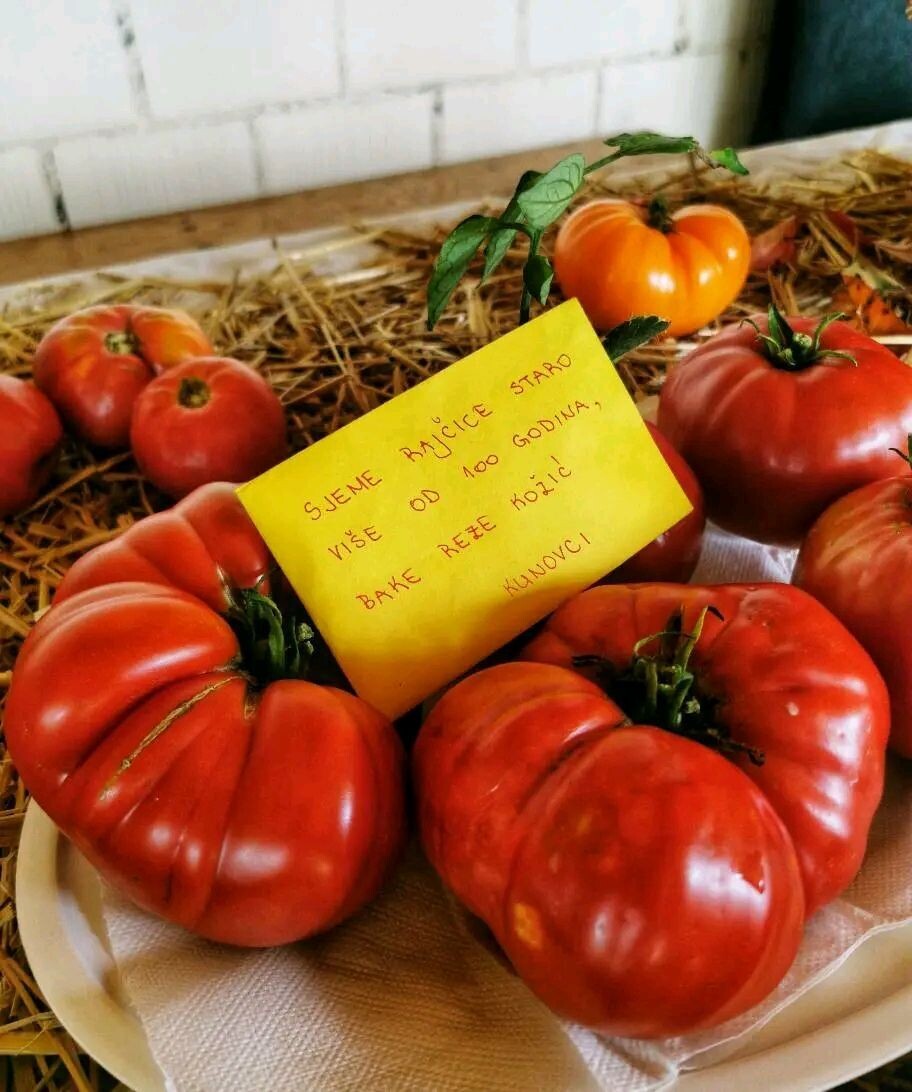 SJEME RAJČICE STARO
VIŠE OD 100 GODINA,
BAKE REZE KOŽIĆ
KUNOVCI